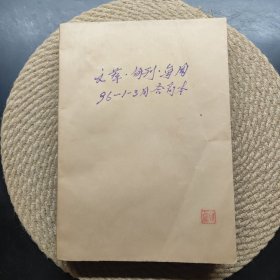 文萃·周刊·每周
96-1-3月合订本